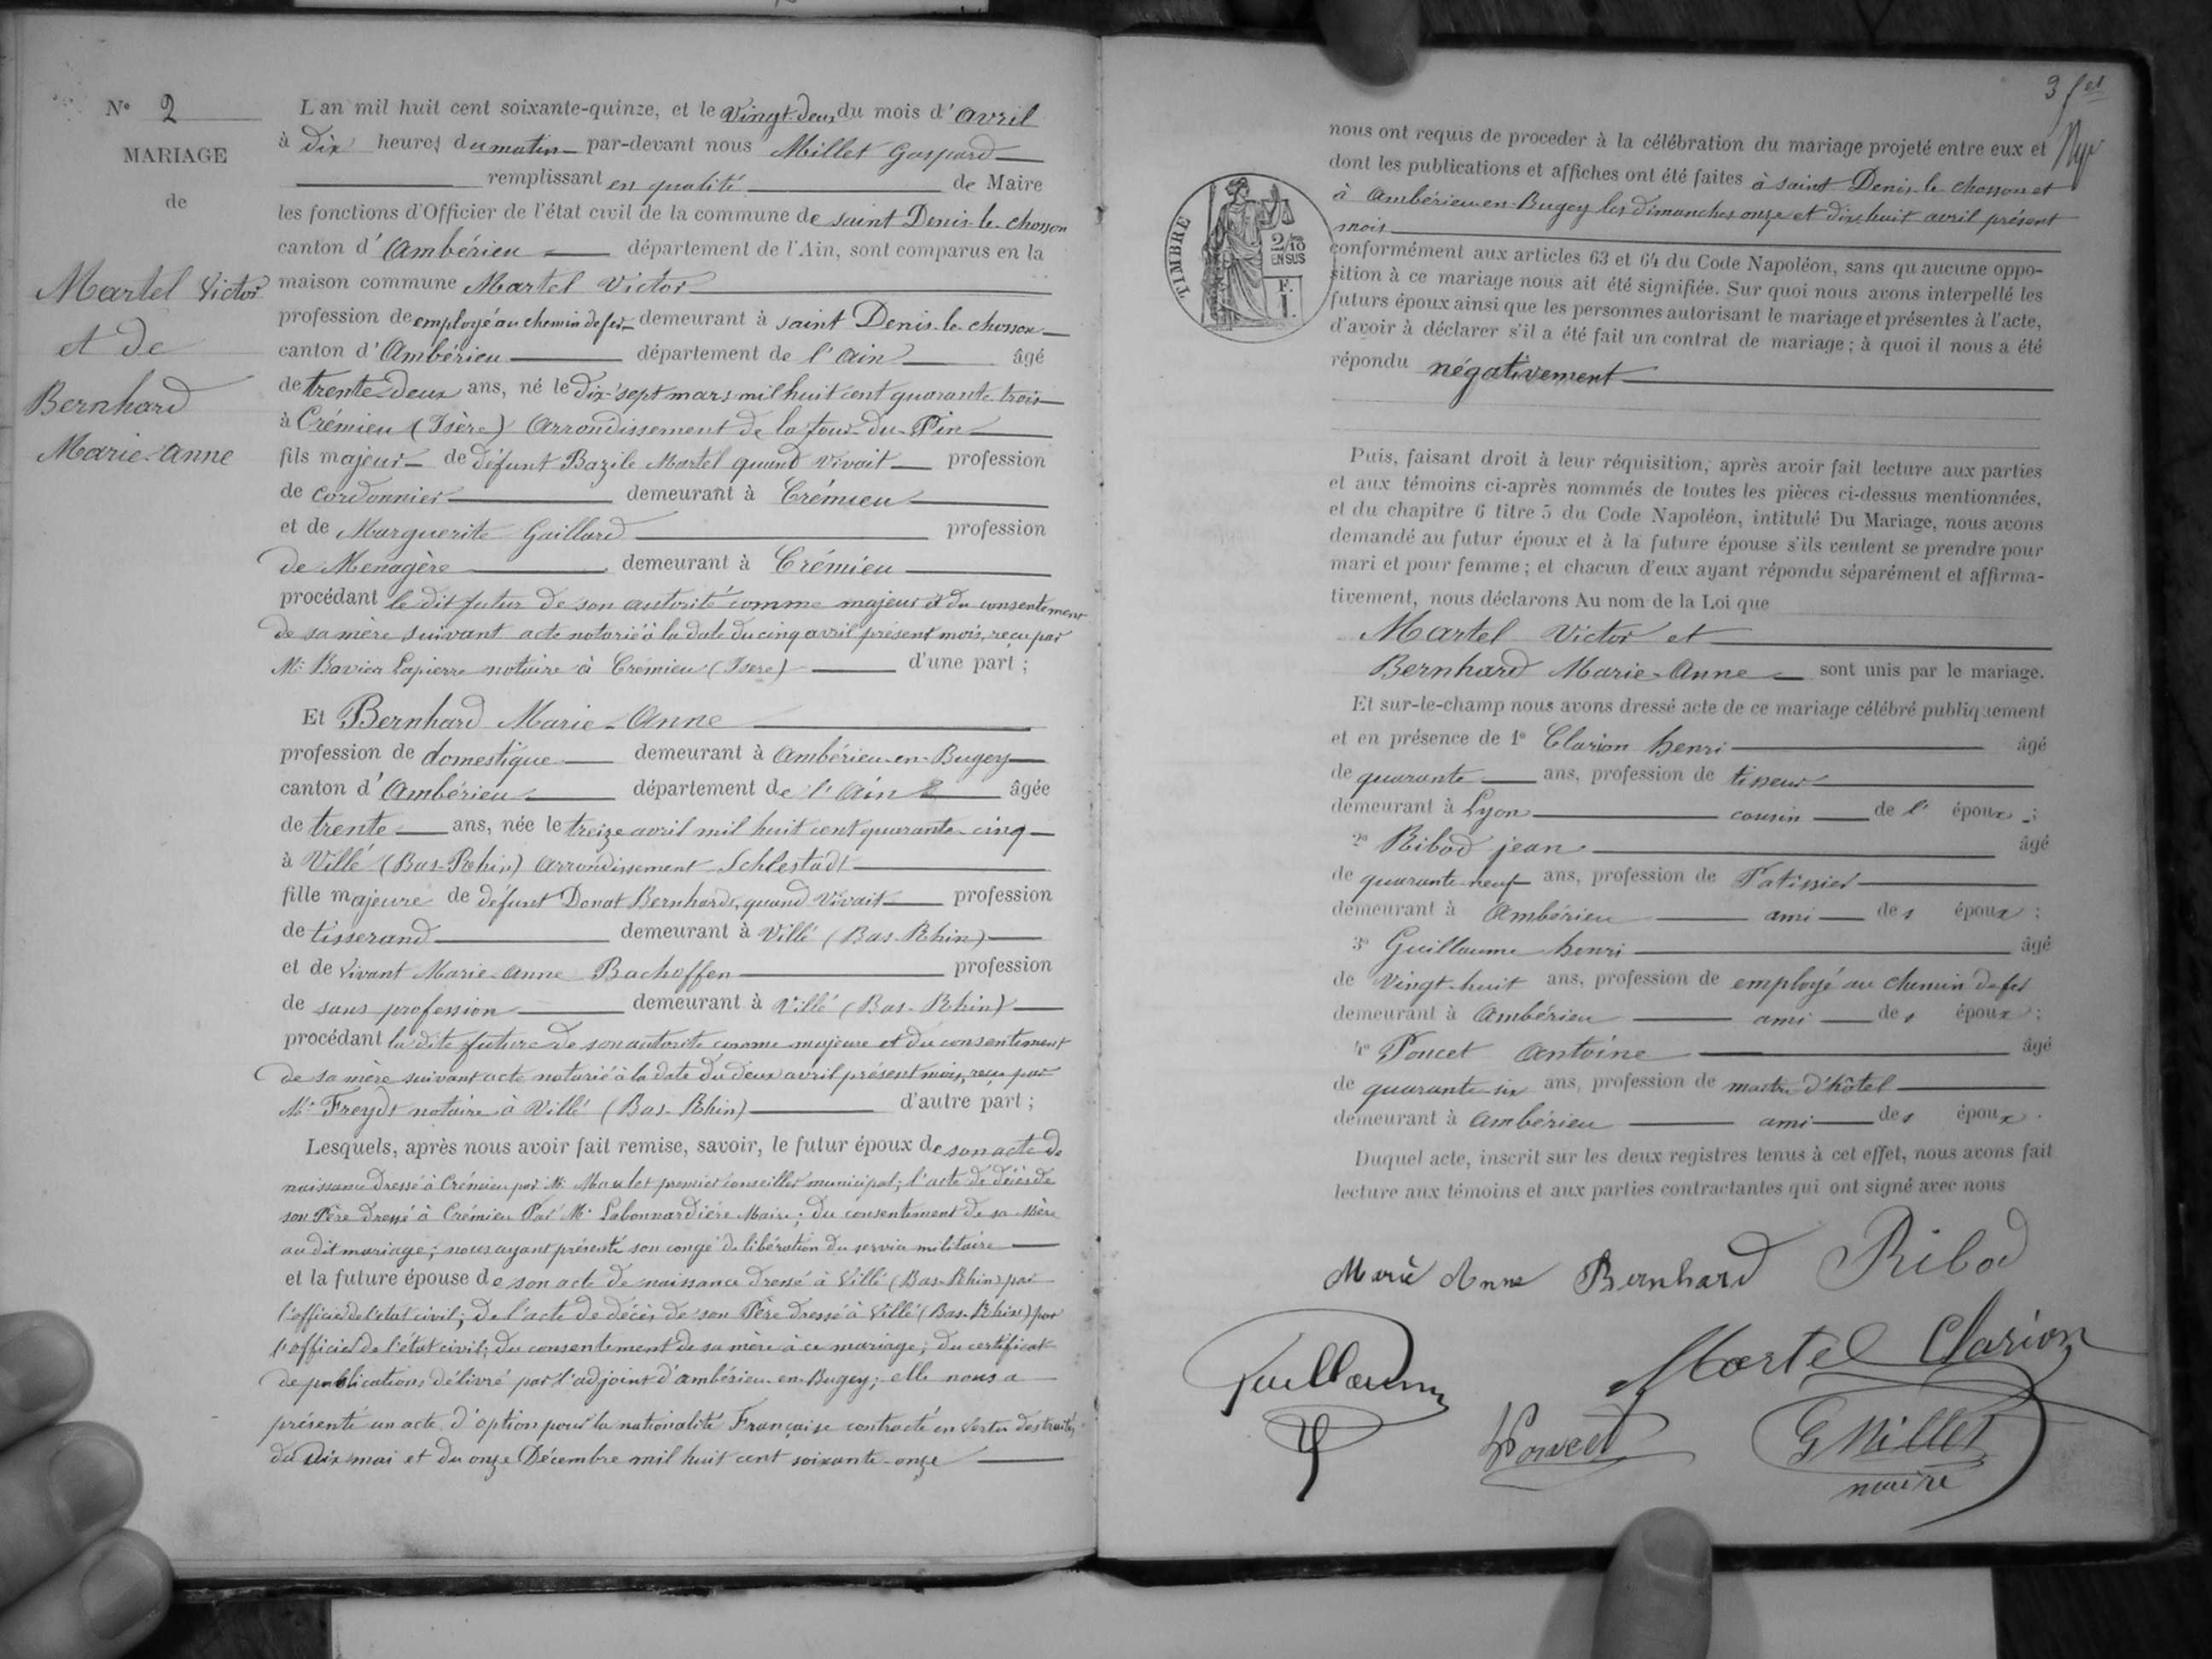 N° 2
MARIAGE
de
Martel Victor
et de
Bernhard
Marie-Anne
L'an mil huit cent soixante-quinze, et le vingt-deux du mois d'avril
à dix heures du matin par-devant nous Millet Gaspard
remplissant en qualité de Maire
les fonctions d'Officier de l'état civil de la commune de saint Denis-le-chosson
canton d'Ambérieu département de l'Ain, sont comparus en la
maison commune Martel Victor
profession de employé au chemin de fer demeurant à saint Denis-le-chosson
canton d'Ambérieu département de l'ain âgé
de trente-deux ans, né le dix-sept mars mil huit cent quarante-trois
à Crémieu (Isère) Arrondissement de la tour-du-Pin
fils majeur de défunt Bazile Martel quand vivait profession
de cordonnier demeurant à Crémieu
et de Marguerite Gaillard profession
de Menagère demeurant à Crémieu
procédant le dit futur de son autorité comme majeur et du consentement
de sa mère suivant acte notarié à la date du cinq avril présent mois, reçu par
Me Lapierre notaire à Crémieu (Isere) d'une part ;
Et Bernhard Marie-Anne
profession de domestique demeurant à Ambérieu-en-Bugey
canton d'Ambérieu département de l'Ain âgée
de trente ans, née le treize avril mil huit cent quarante-cinq
à Villé (Bas-Rhin) arrondissement Schlestadt
fille majeure de défunt Donat Bernhard, quand vivait profession
de tisserand demeurant à Villé (Bas-Rhin)
et de vivant Marie-Anne Bachoffen profession
de sans profession demeurant à Villé (Bas-Rhin)
procédant la dite future de son autorité comme majeure et du consentement
de sa mère suivant acte notarié à la date du deux avril présent mois, reçu par
Me Freydt notaire à Villé (Bas-Rhin) d'autre part ;
Lesquels, après nous avoir fait remise, savoir, le futur époux de son acte de
naissance dressé à Crémieu par Mr premier conseiller municipal ; l'acte de décès de
son Père dressé à Crémieu Par Mr Labonnardière Maire ; du consentement de sa Mère
au dit mariage ; nous ayant présenté son congé de libération du service militaire
et la future épouse de son acte de naissance dressé à Villé (Bas-Rhin) par
l'officier de l'état civil ; de l'acte de décès de son Père dressé à Villé (Bas-Rhin) par
l'officier de l'état civil ; du consentement de sa mère à ce mariage ; du certificat
de publications délivré par l'adjoint d'ambérieu-en-Bugey ; elle nous a
présenté un acte d'option pour la nationalité Française contracté en vertu des traités
du dix mai et du onze Décembre mil huit cent soixante-onze
3 fet
nous ont requis de proceder à la célébration du mariage projeté entre eux et
dont les publications et affiches ont été faites à saint Denis-le-chosson et
à Ambérieu-en-Bugey les dimanches onze et dix-huit avril présent
mois
TIMBRE
2/10
EN SUS
F.
1.
conformément aux articles 63 et 64 du Code Napoléon, sans qu'aucune oppo-
sition à ce mariage nous ait été signifiée. Sur quoi nous avons interpellé les
futurs époux ainsi que les personnes autorisant le mariage et présentes à l'acte,
d'avoir à déclarer s'il a été fait un contrat de mariage ; à quoi il nous a été
répondu négativement
Puis, faisant droit à leur réquisition, après avoir fait lecture aux parties
et aux témoins ci-après nommés de toutes les pièces ci-dessus mentionnées,
et du chapitre 6 titre 5 du Code Napoléon, intitulé Du Mariage, nous avons
demandé au futur époux et à la future épouse s'ils veulent se prendre pour
mari et pour femme ; et chacun d'eux ayant répondu séparément et affirma-
tivement, nous déclarons Au nom de la Loi que
Martel Victor et
Bernhard Marie-Anne sont unis par le mariage.
Et sur-le-champ nous avons dressé acte de ce mariage célébré publiquement
et en présence de 1° Clarion henri âgé
de quarante ans, profession de tisseur
demeurant à Lyon cousin de l' époux ;
2° Ribod jean âgé
de quarante-neuf ans, profession de Patissier
demeurant à Ambérieu ami des époux ;
3° Guillaume henri âgé
de vingt-huit ans, profession de employé au chemin de fer
demeurant à Ambérieu ami des époux ;
4° Poncet Antoine âgé
de quarante-six ans, profession de maitre d'hôtel
demeurant à Ambérieu ami des époux.
Duquel acte, inscrit sur les deux registres tenus à cet effet, nous avons fait
lecture aux témoins et aux parties contractantes qui ont signé avec nous
Marie Anne Bernhard Ribod
Guillaume Martel Clarion
Poncet G Millet
maire